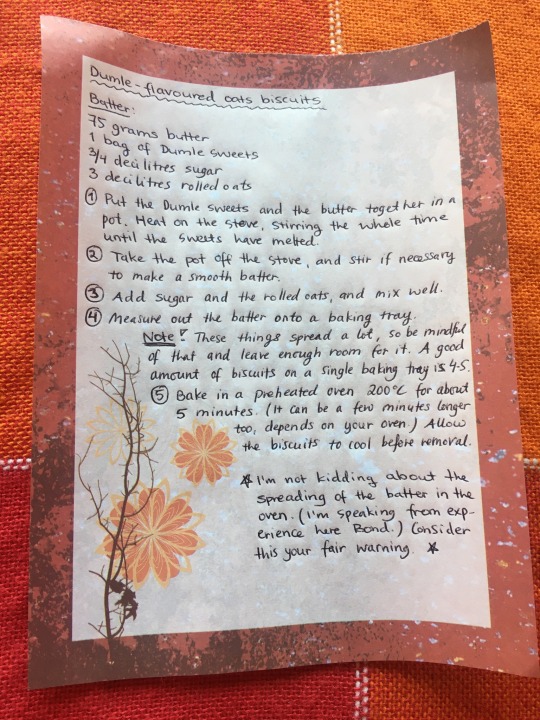 Dumle-flavoured oats biscuits
Batter:
75 grams butter
1 bag of Dumle sweets
3/4 decilitres sugar
3 decilitres rolled oats
① Put the Dumle sweets and the butter together in a
pot. Heat on the stove, stirring the whole time
until the sweets have melted.
② Take the pot off the stove, and stir if necessary
to make a smooth batter.
③ Add sugar and the rolled oats, and mix well.
④ Measure out the batter onto a baking tray.
Note! These things spread a lot, so be mindful
of that and leave enough room for it. A good
amount of biscuits on a single baking tray is 4-5.
⑤ Bake in a preheated oven 200°C for about
5 minutes. (It can be a few minutes longer
too, depends on your oven.) Allow
the biscuits to cool before removal.
* I'm not kidding about the
spreading of the batter in the
oven. (I'm speaking from exp-
erience here Bond.) Consider
this your fair warning. *